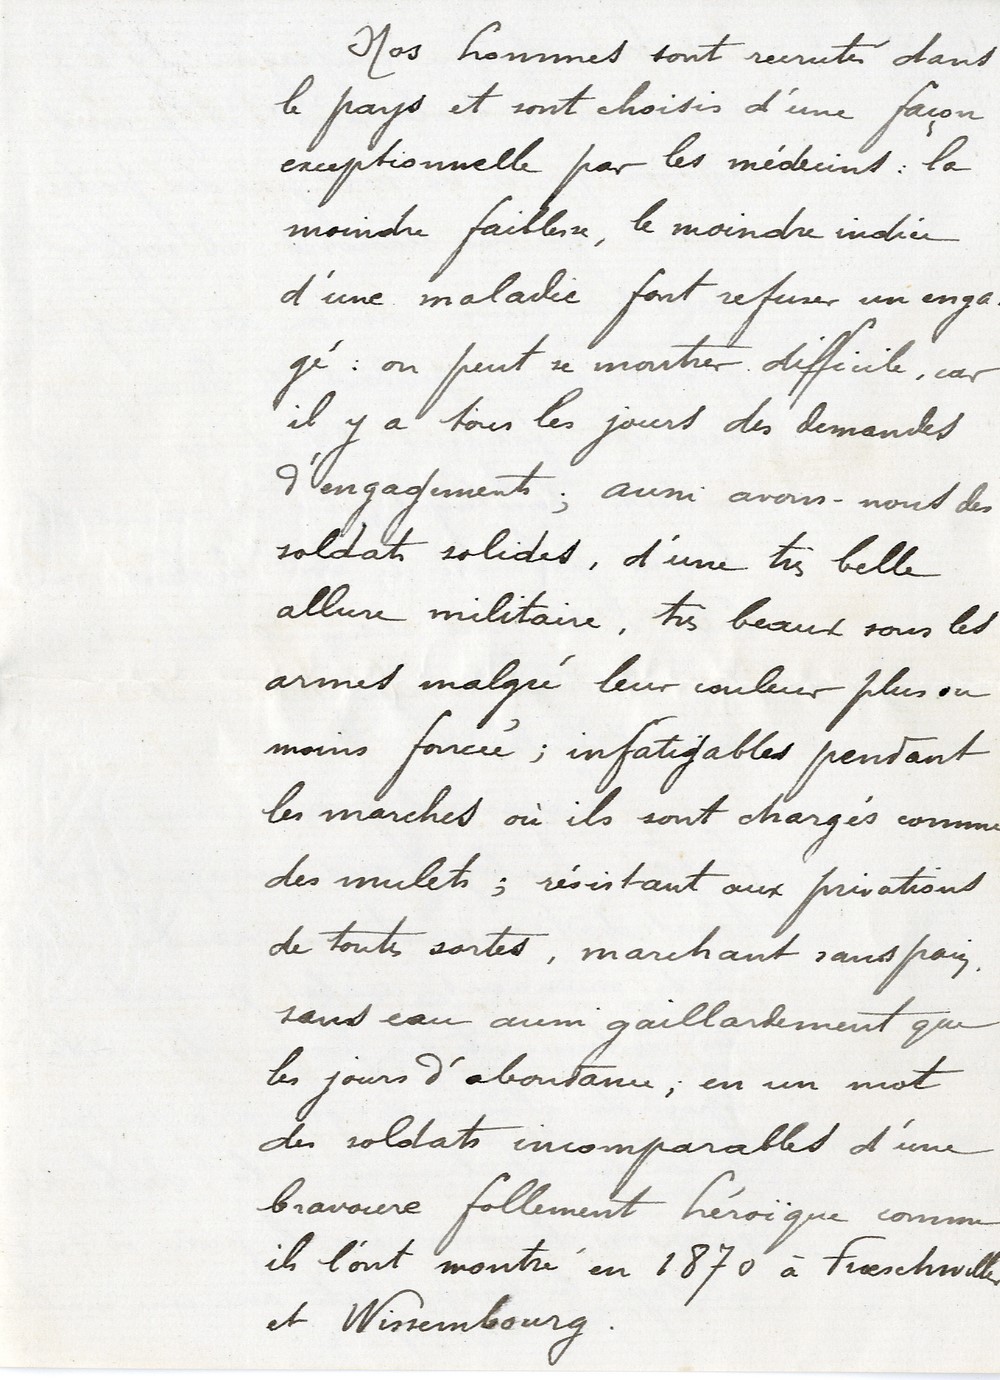 Nos hommes sont recrutés dans
le pays et sont choisis d'une façon
exceptionnelle par les médecins : la
moindre faiblesse, le moindre indice
d'une maladie font refuser un enga-
gé : on peut se montrer difficile, car
il y a tous les jours des demandes
d'engagements ; aussi avons-nous des
soldats solides, d'une très belle
allure militaire, très beaux sous les
armes malgré leur couleur plus ou
moins foncée ; infatigables pendant
les marches où ils sont chargés comme
des mulets ; résistant aux privations
de toutes sortes, marchant sans pain,
sans eau aussi gaillardement que
les jours d'abondance ; en un mot
des soldats incomparables d'une
bravoure follement héroïque comme
ils l'ont montré en 1870 à Frœschwiller
et Wissembourg.